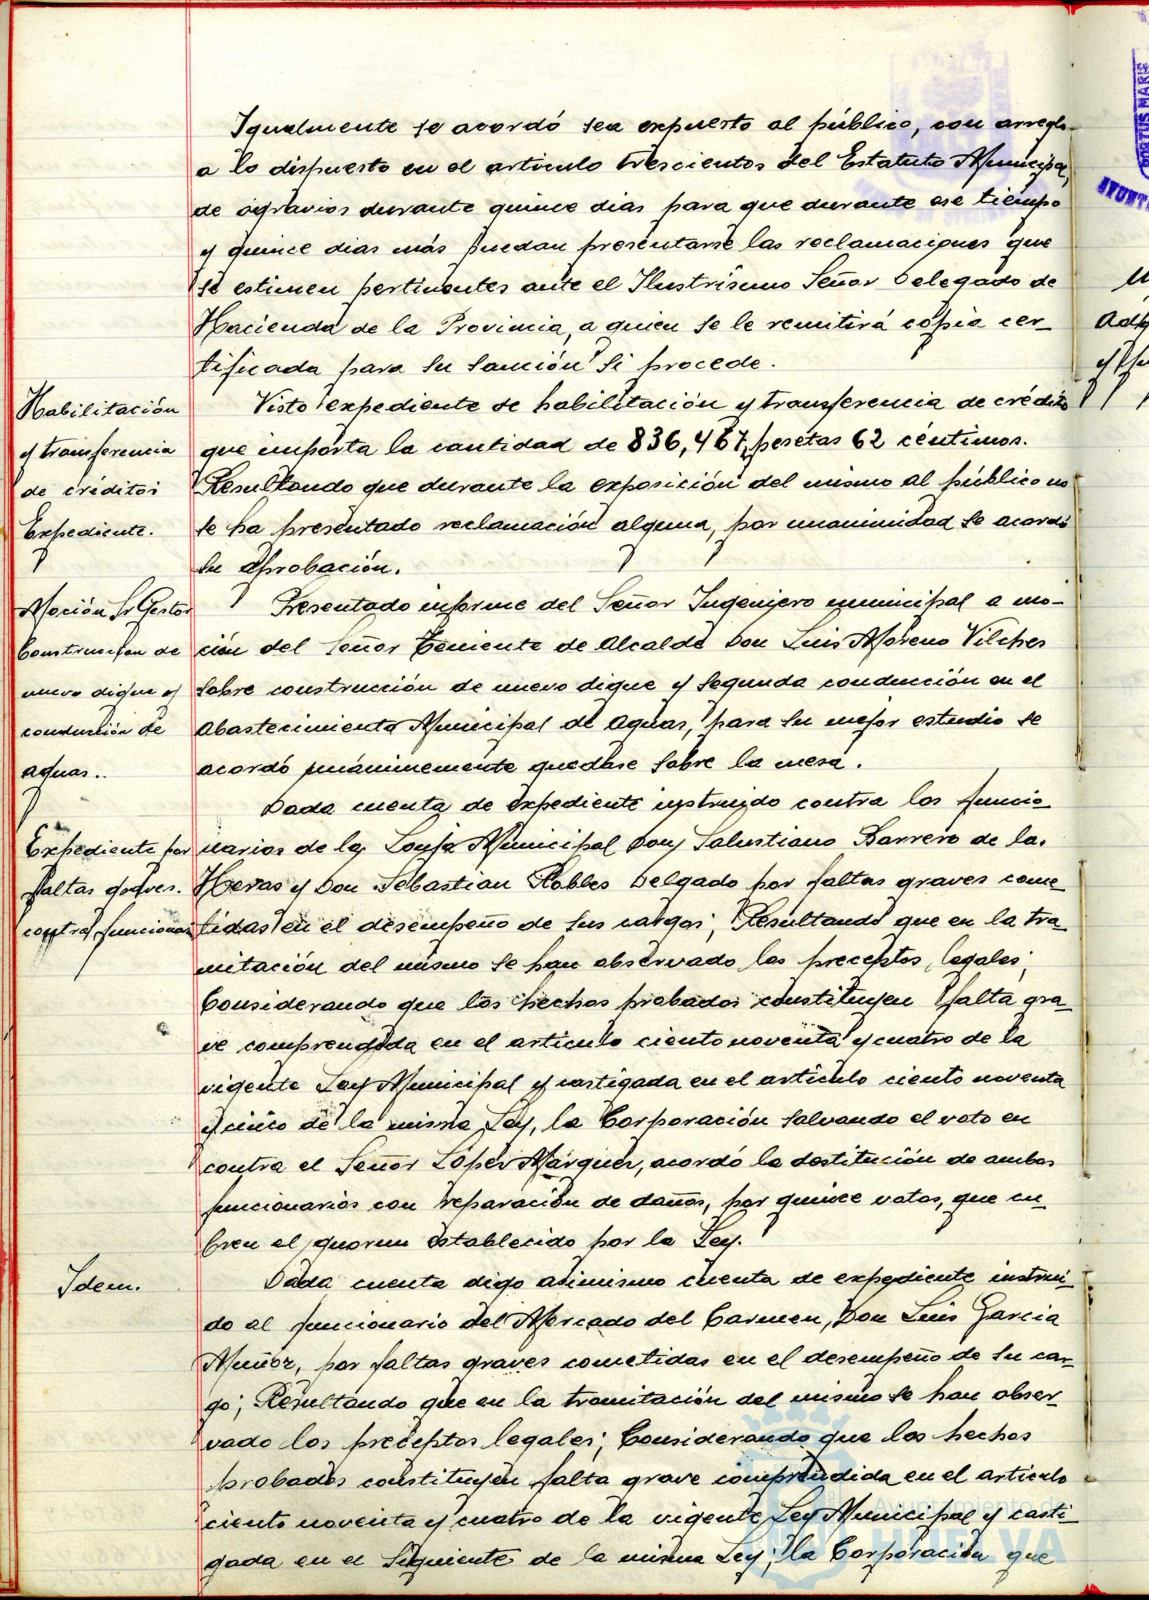 Igualmente se acordó sea expuesto al público, con arreglo
a lo dispuesto en el articulo trescientos del Estatuto Municipal,
de agravios durante quince dias para que durante ese tiempo
y quince dias más puedan presentarse las reclamaciones que
se estimen pertinentes ante el Ilustrísimo Señor Delegado de
Hacienda de la Provincia, a quien se le remitirá copia cer_
tificada para su sanción si procede.
Habilitación
y transferencia
de créditos
Expediente.
Visto expediente de habilitación y transferencia de crédito
que importa la cantidad de 836,467, pesetas 62 céntimos.
Resultando que durante la exposición del mismo al público no
se ha presentado reclamación alguna, por unanimidad se acordó
su aprobación.
Moción Sr Gestor
Construccion de
nuevo dique y
conducción de
aguas..
Presentado informe del Señor Ingeniero municipal a mo-
ción del Señor Teniente de Alcalde Don Luis Moreno Vilches
sobre construcción de nuevo dique y segunda conducción en el
Abastecimiento Municipal de Aguas, para su mejor estudio se
acordó unánimemente quedase sobre la mesa.
Expediente por
faltas graves.
contra funcionar
Dada cuenta de expediente instruido contra los funcio_
narios de la Lonja Municipal Don Salustiano Barrero de la.
Heras y Don Sebastian Robles Delgado por faltas graves come_
tidas en el desempeño de sus cargos; Resultando que en la tra_
mitación del mismo se han observado los preceptos legales;
Considerando que los hechos probados constituyen falta gra_
ve comprendida en el articulo ciento noventa y cuatro de la
vigente Ley Municipal y castigada en el articulo ciento noventa
y cinco de la misma Ley, la Corporación salvando el voto en
contra el Señor López Márquez, acordó la destitución de ambos
funcionarios con reparación de daños, por quince votos, que cu_
bren el quorum establecido por la Ley.
Idem.
Dada cuenta digo asimismo cuenta de expediente instrui_
do al funcionario del Mercado del Carmen, Don Luis Garcia
Muñoz, por faltas graves cometidas en el desempeño de su car_
go; Resultando que en la tramitación del mismo se han obser_
vado los preceptos legales; Considerando que los hechos
probados constituyen falta grave comprendida en el articulo
ciento noventa y cuatro de la vigente Ley Municipal y casti_
gada en el siguiente de la misma Ley; la Corporación que
Ayuntamiento de
HUELVA